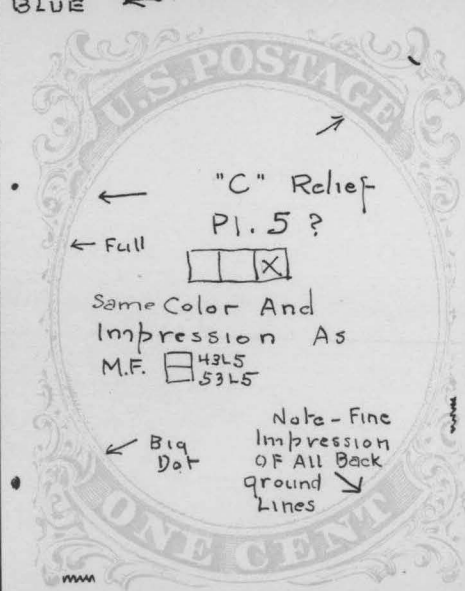 BLUE ←
U.S. POSTAGE
"C" Relief
Pl. 5 ?
← Full
X
Same Color And
Impression As
M.F. 43L5
53L5
← Big
Dot
Note - Fine
Impression
OF All Back
ground
Lines
ONE CENT